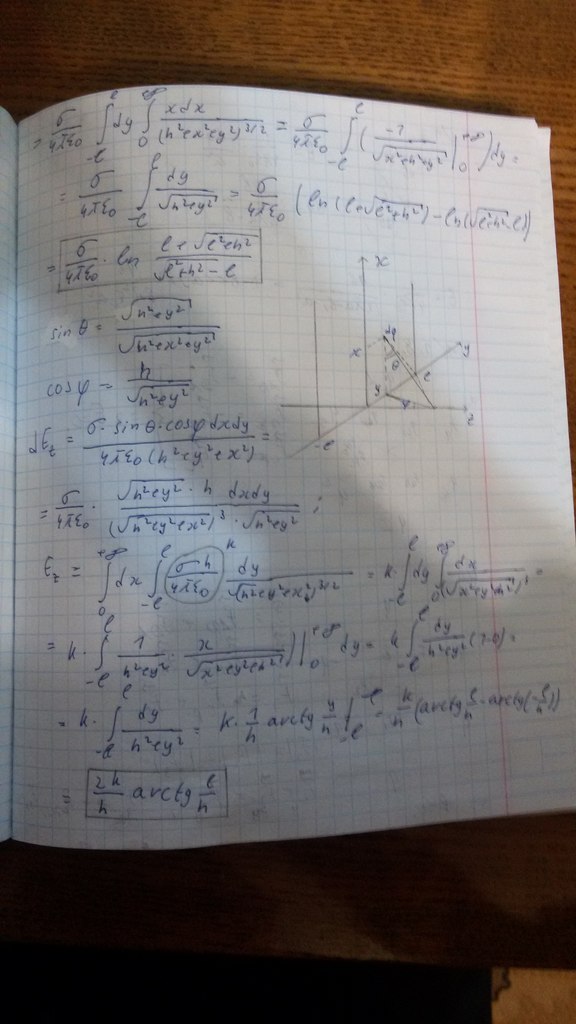 = σ/4πε₀ ∫_{-l}^{l} dy ∫_0^{+∞} xdx/(h²+x²+y²)^{3/2} = σ/4πε₀ ∫_{-l}^{l} (-1/√(x²+h²+y²) |_0^{+∞}) dy =
= σ/4πε₀ ∫_{-l}^{l} dy/√(h²+y²) = σ/4πε₀ (ln(l+√(l²+h²)) - ln(√(l²+h²)-l))
= σ/4πε₀ · ln (l+√(l²+h²))/(√(l²+h²)-l)
x
sinθ = √(h²+y²)/√(h²+x²+y²)
dq
y
x
θ
cosφ = h/√(h²+y²)
l
y
φ
z
-l
dE_z = σ·sinθ·cosφ dxdy/4πε₀(h²+y²+x²) =
= σ/4πε₀ · √(h²+y²)·h dxdy/(√(h²+y²+x²))³·√(h²+y²) ;
E_z = ∫_0^{+∞} dx ∫_{-l}^{l} σh/4πε₀ k dy/√(h²+y²+x²)^{3/2} = k·∫_{-l}^{l} dy ∫_0^{+∞} dx/(√(x²+y²+h²))³ =
= k·∫_{-l}^{l} 1/(h²+y²) · x/√(x²+y²+h²) )|_0^{+∞} dy = k ∫_{-l}^{l} dy/(h²+y²) (1-0) =
= k·∫_{-l}^{l} dy/(h²+y²) = k·1/h arctg y/h |_{-l}^{l} = k/h (arctg l/h - arctg(-l/h))
= 2k/h arctg l/h